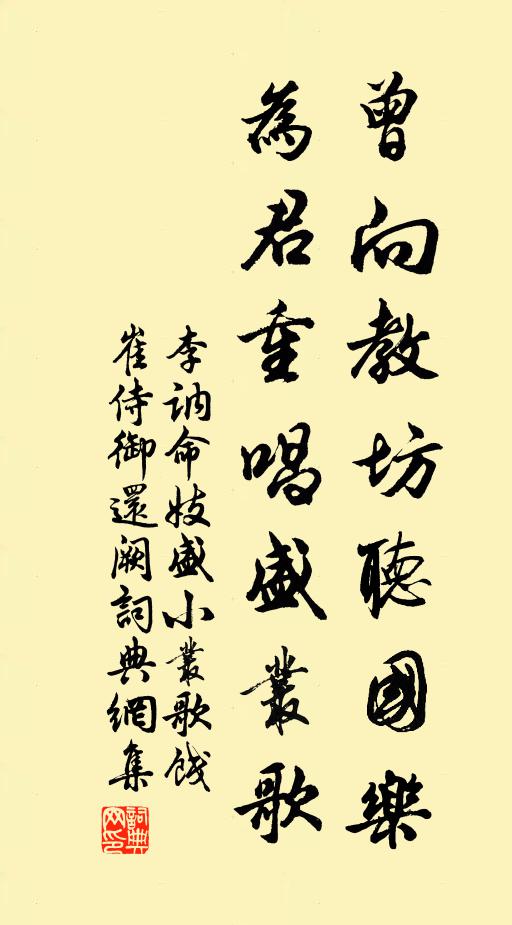 曾向教坊聽國樂
為君重唱盛叢歌
李訥命妓盛小叢歌餞
崔侍御還闕詞典網集
詞典
网印